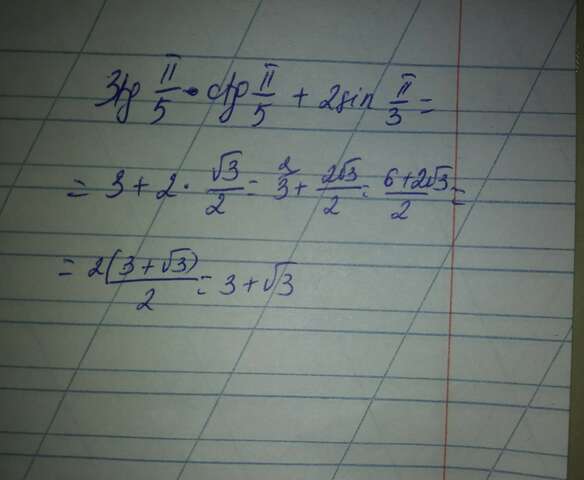 3tg π/5 · ctg π/5 + 2sin π/3 =
= 3 + 2 · √3/2 = 3^2 + 2√3/2 = 6+2√3/2 =
= 2(3+√3)/2 = 3+√3